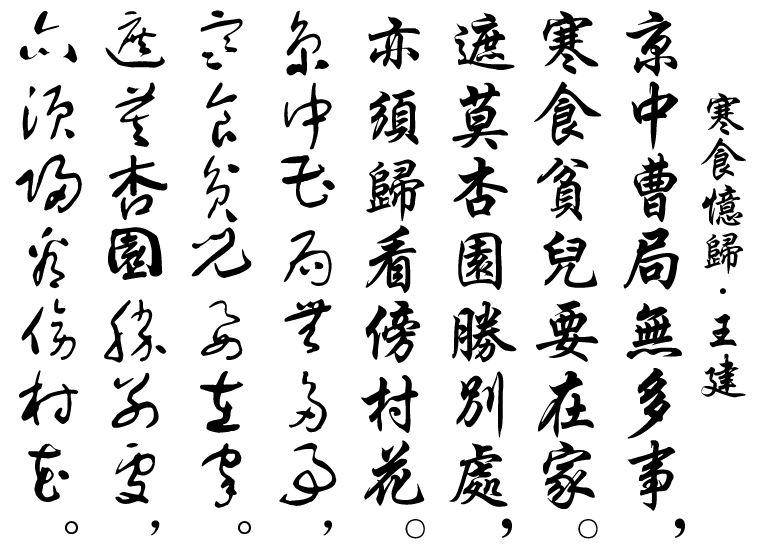 寒食憶歸·王建
京中曹局無多事，
寒食貧兒要在家。
遮莫杏園勝別處，
亦須歸看傍村花。
京中曹局無多事，
寒食貧兒要在家。
遮莫杏園勝別處，
亦須歸看傍村花。